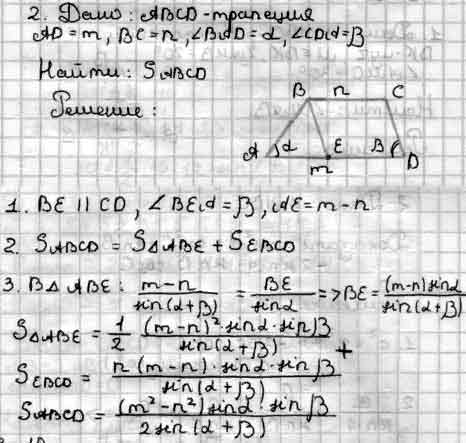 2. Дано: ABCD - трапеция
AD = m, BC = n, ∠BAD = α, ∠CDA = β
Найти: SABCD
Решение:
B n C
A α E β D
m
1. BE || CD, ∠BEA = β, AE = m - n
2. SABCD = S△ABE + SEBCD
3. В △ ABE: (m-n)/sin(α+β) = BE/sinα => BE = (m-n)sinα/sin(α+β)
S△ABE = 1/2 (m-n)²·sinα·sinβ/sin(α+β)
+
SEBCD = n(m-n)·sinα·sinβ/sin(α+β)
SABCD = (m²-n²)sinα·sinβ/2sin(α+β)